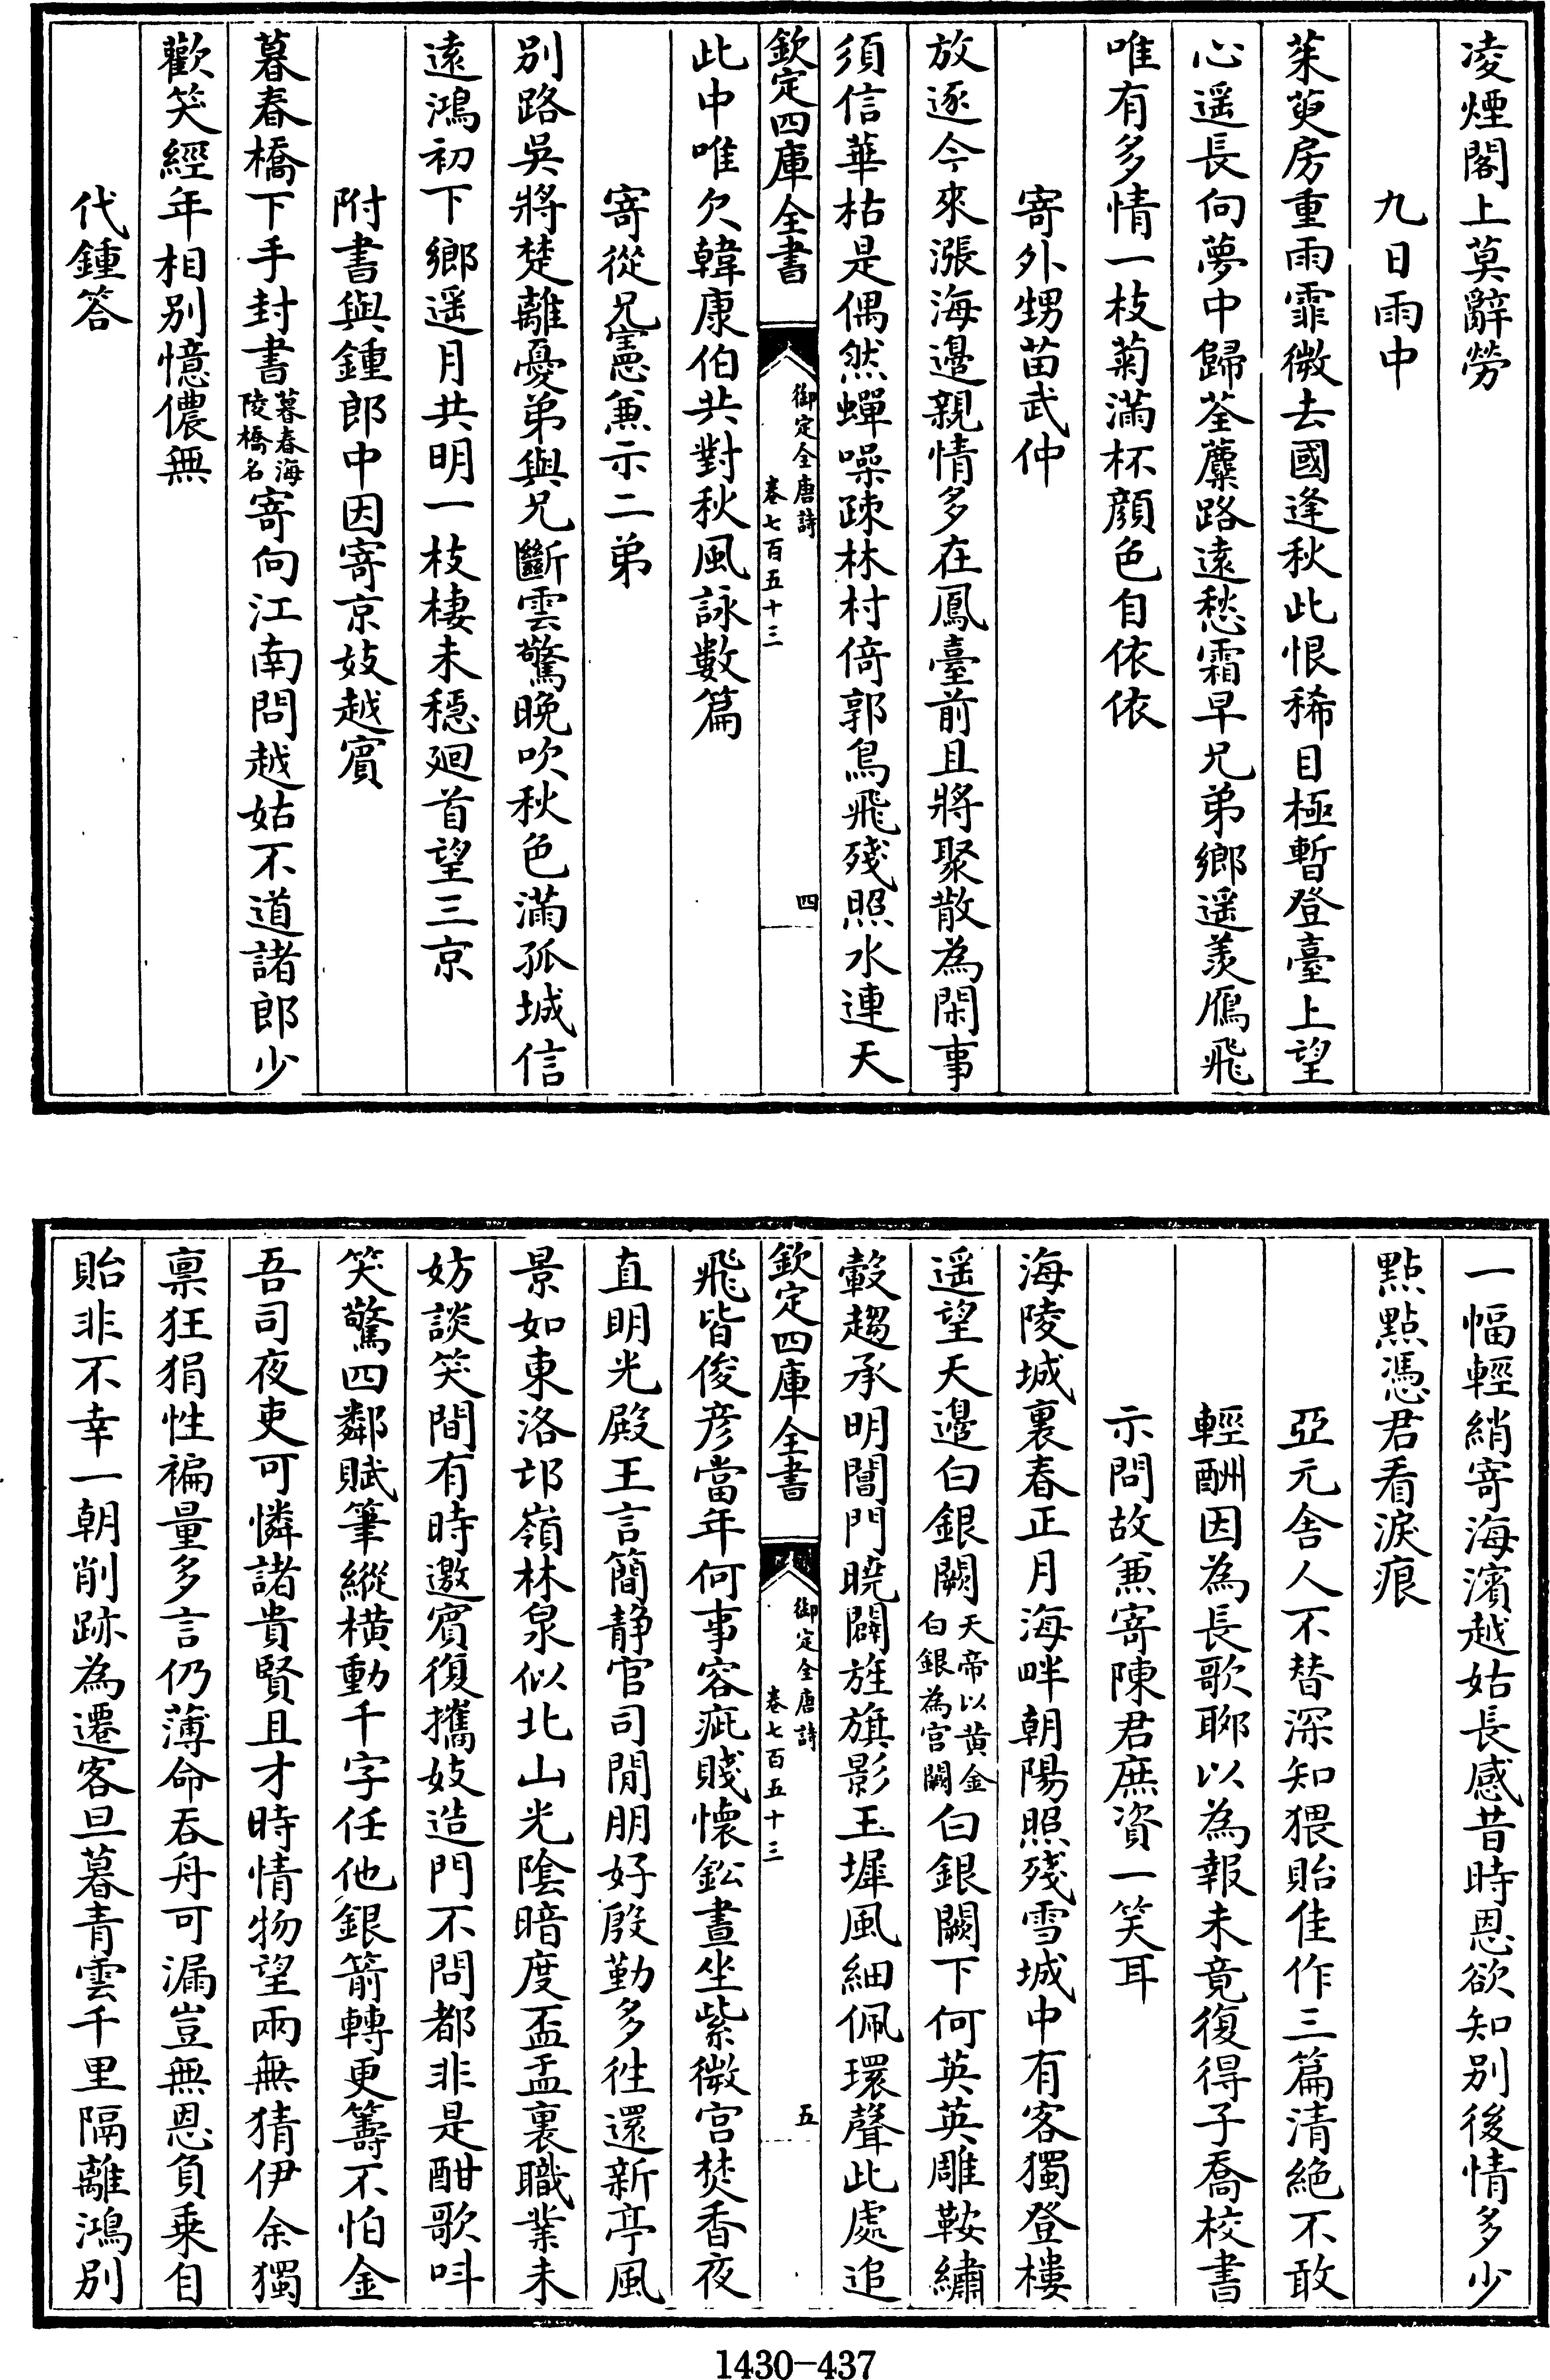 凌煙閣上莫辭勞
九日雨中
茱萸房重雨霏微去國逢秋此恨稀目極暫登臺上望
心遥長向夢中歸荃蘪路遠愁霜早兄弟鄉遥羨鴈飛
唯有多情一枝菊滿杯顔色自依依
寄外甥苗武仲
放逐今來漲海邊親情多在鳳臺前且將聚散為閑事
須信華枯是偶然蟬噪疎林村倚郭鳥飛殘照水連天
欽定四庫全書
御定全唐詩
卷七百五十三
四
此中唯欠韓康伯共對秋風詠數篇
寄從兄憲兼示二弟
別路吳將楚離憂弟與兄斷雲驚晚吹秋色滿孤城信
遠鴻初下鄉遥月共明一枝棲未穩廻首望三京
附書與鍾郎中因寄京妓越賓
暮春橋下手封書暮春海陵橋名寄向江南問越姑不道諸郎少
歡笑經年相別憶儂無
代鍾答
一幅輕綃寄海濱越姑長感昔時恩欲知別後情多少
點點憑君看淚痕
亞元舍人不替深知猥貽佳作三篇清絶不敢
輕酬因為長歌聊以為報未竟復得子喬校書
示問故兼寄陳君庶資一笑耳
海陵城裏春正月海畔朝陽照殘雪城中有客獨登樓
遥望天邊白銀闕天帝以黄金白銀為宫闕白銀闕下何英英雕鞍繡
轂趨承明閶門曉闢旌旗影玉墀風細佩環聲此處追
欽定四庫全書
御定全唐詩
卷七百五十三
五
飛皆俊彦當年何事容疵賤懷鉛晝坐紫微宫焚香夜
直明光殿王言簡静官司閒朋好殷勤多徃還新亭風
景如東洛邙嶺林泉似北山光陰暗度盃盂裏職業未
妨談笑間有時邀賓復攜妓造門不問都非是酣歌叫
笑驚四鄰賦筆縱橫動千字任他銀箭轉更籌不怕金
吾司夜吏可憐諸貴賢且才時情物望兩無猜伊余獨
禀狂狷性褊量多言仍薄命吞舟可漏豈無恩負乗自
貽非不幸一朝削跡為遷客旦暮青雲千里隔離鴻別
1430-437